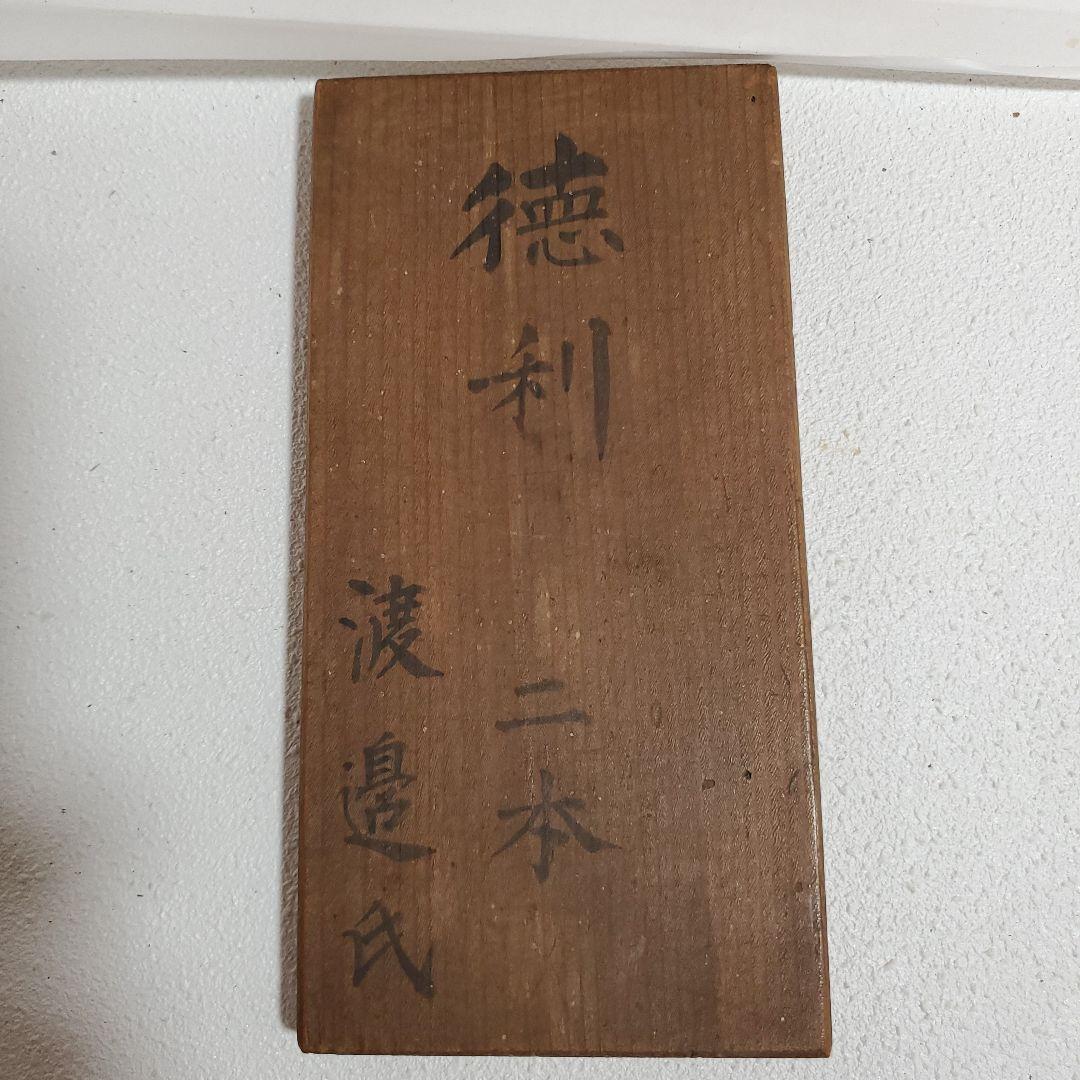 徳利 二本
渡邉氏